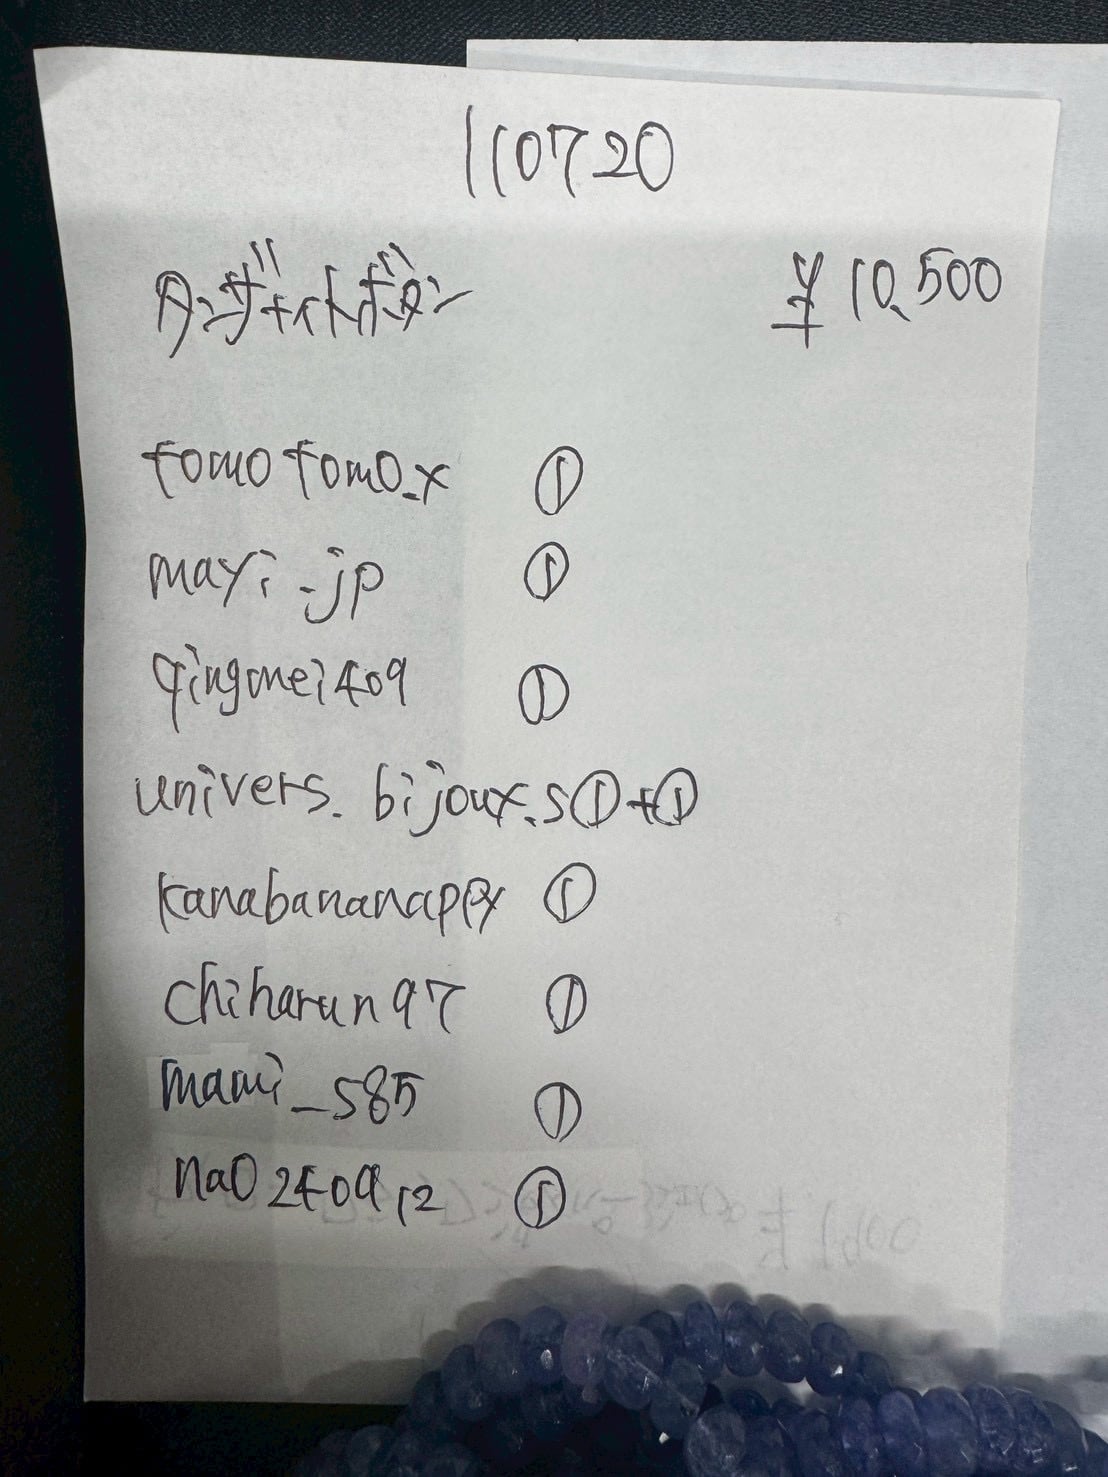 110720
タンザナイトボタン ¥10,500
tomotomo.x ①
mayi.jp ①
qingmei409 ①
univers.bijoux.s①+①
kanabananappy ①
chiharun97 ①
mami_s85 ①
nao240912 ①